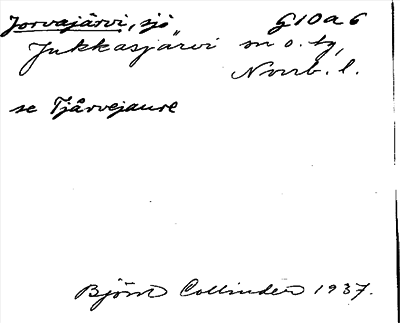 Jorvajärvi, sjö G10a6
Jukkasjärvi sn o. tg,
Norrb. l.
se Tjårvejaure
Björn Collinder 1937.